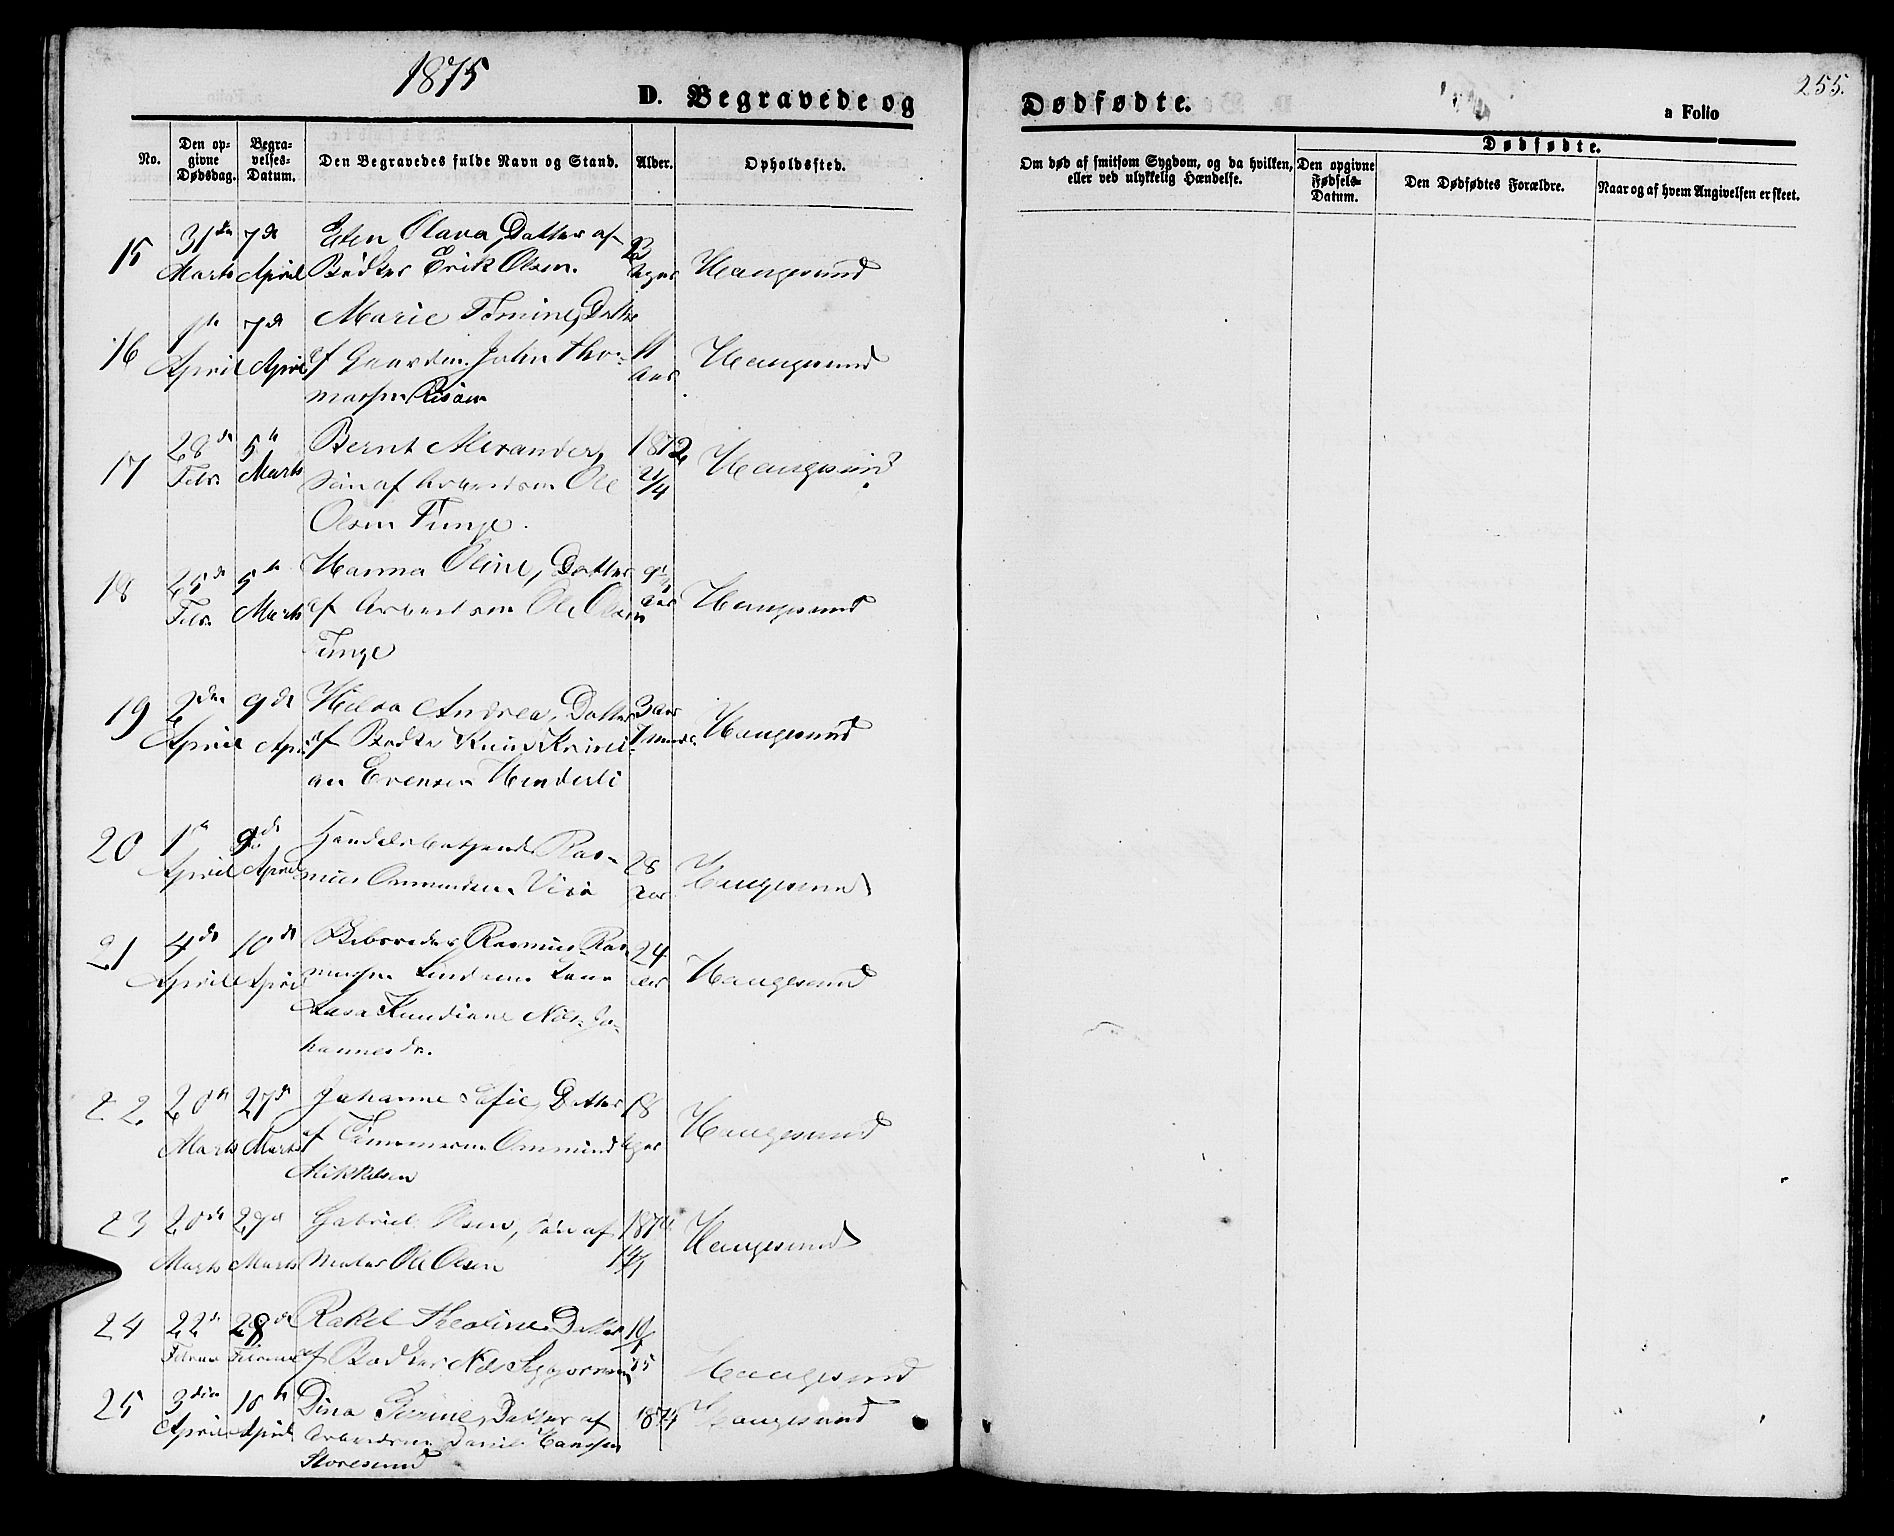 1875
255.
D. Begravede og Dødfødte.
a Folio
No.
Den op-
givne
Dødsdag.
Begra-
velses-
Datum.
Den Begravedes fulde Navn og Stand.
Alder.
Opholdssted.
Om død af smitsom Sygdom, og da hvilken,
eller ved ulykkelig Hændelse.
Dødfødte.
Den opgivne
Fødsels-
Datum.
Den Dødfødtes Forældre.
Naar og af hvem Angivelsen er skeet.
15 31de 7de Elen Olava, Datter af
Marts April Bødker Erik Olsen. Uger Haugesund
16 1ste 7de Marie Datter
April April af Gaardm. John Tho- 11 Aar Haugesund
massen Risøen
17 28de 5te Bernt Alexander, 1872
Febr. Marts Søn af Arbeidsm Ole 2/4 Haugesund
Olsen Tunge.
18 25de 5te Hanna Oline, Datter 9
Febr. Marts af Arbeidsm Ole Olsen Aar Haugesund
Tunge
19 2den 9de Andrea, Datter 3 Aar
April April af Bødker Knud Kristi- 7 Haugesund
an Evensen
20 1ste 9de Handelsbetjent Ras- 28
April April mus Ommundsen Aar Haugesund
21 4de 10de Rasmus Ras- 24
April April mussen Aar Haugesund
Nils Jo-
hannesdr.
22. 20de 27de Johanne Sofie, Datter 18
Marts Marts af Tømmerm. Ommund Uger Haugesund
Mikkelsen
23 20de 29de Gabriel Olsen, Søn af 1874
Marts Marts Maler Ole Olsen Haugesund
24 22de 28de Rakel Theoline, Datter 10/1
Februar Februar af Bødker Nils 75 Haugesund
25 3die 10de Dina Datter af 1874 Haugesund
April April Arbeidsm. Daniel Hanssen
Storesund